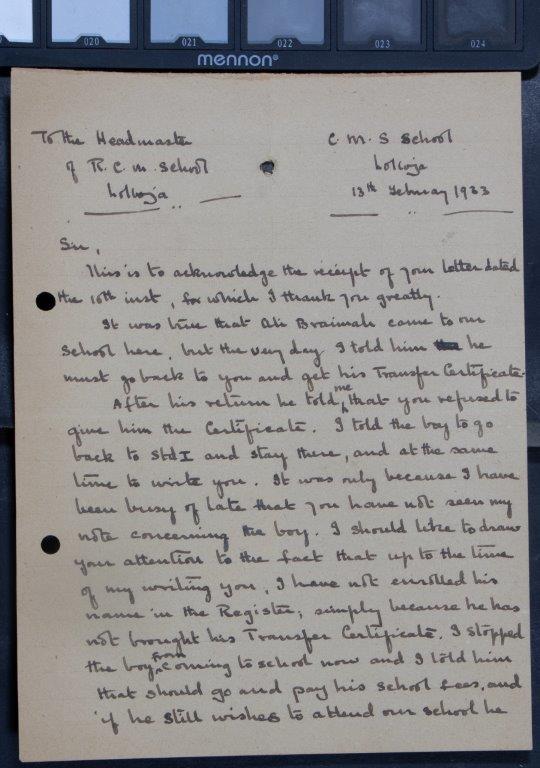 020 021 022 023 024
mennon®
To the Headmaster
of R.C.M. School
Lokoja
C. M. S School
Lokoja
13th February 1933
Sir,
This is to acknowledge the receipt of your letter dated
the 10th inst, for which I thank you greatly.
It was true that Ali Braimah came to our
School here, but the very day I told him he
must go back to you and get his Transfer Certificate.
After his return he told me that you refused to
give him the Certificate. I told the boy to go
back to Std I and stay there, and at the same
time to write you. It was only because I have
been busy of late that you have not seen my
note concerning the boy. I should like to draw
your attention to the fact that up to the time
of my writing you, I have not enrolled his
name in the Register, simply because he has
not brought his Transfer Certificate. I stopped
the boy from coming to school now and I told him
that should go and pay his school fees, and
if he still wishes to attend our school he